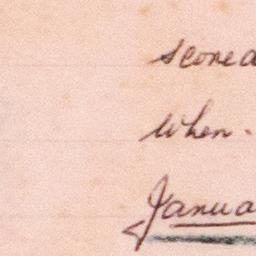 scored
when.
Janua